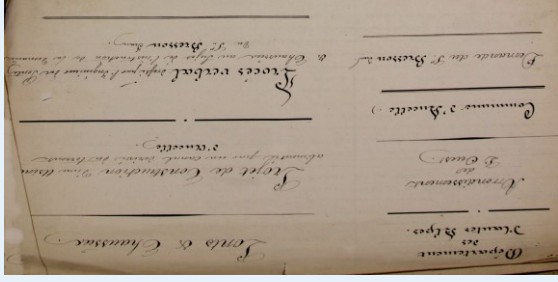 Département
des
Hautes Alpes.
Arrondissement
de
L'Ouest
Commune d'Ancelle
Demande du S. Bresson
Ponts & Chaussées
Projet de Construction d'une Usine
alimentée par un canal dérivé du torrent
d'Ancelle.
Procès verbal dressé par l'Ingénieur des Ponts
& Chaussées au sujet de la Construction de la
du S. Bresson